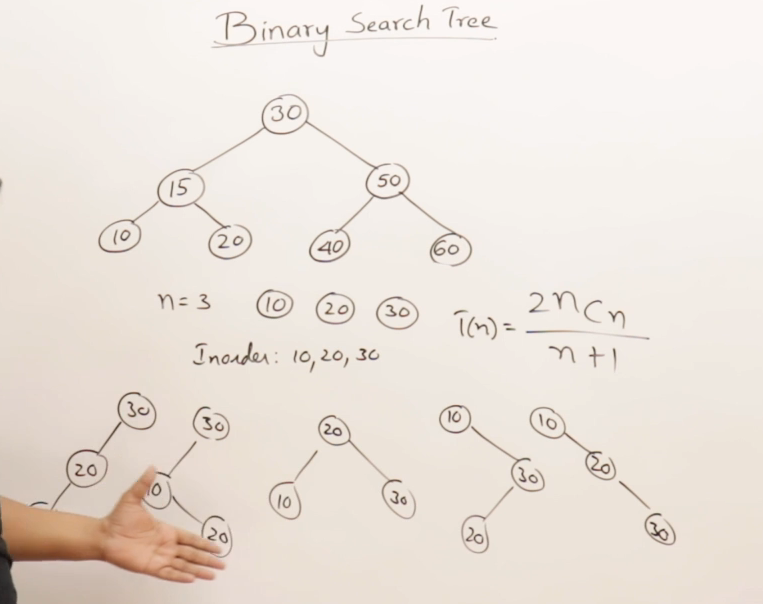 Binary Search Tree
30
15 50
10 20 40 60
n=3 10 20 30
T(n) = 2nCn / n+1
Inorder: 10,20,30
30 30 20 10 10
20 10 10 30 30 20
20 20 30